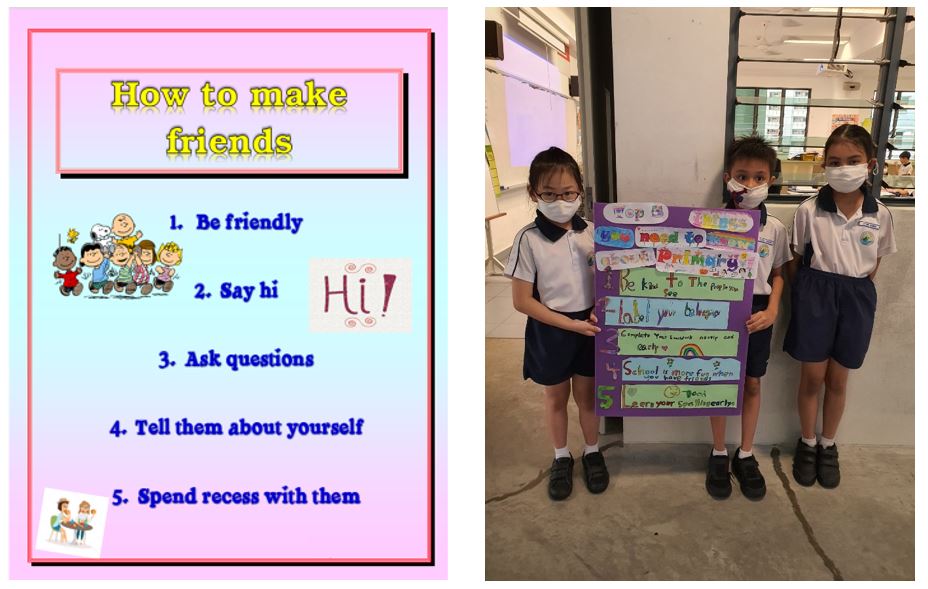 How to make
friends
1. Be friendly
2. Say hi
Hi!
3. Ask questions
4. Tell them about yourself
5. Spend recess with them
Top 5 Things
you need to know
about Primary 1
1 Be kind To The People you
See
2 Label your
3 Complete your homework neatly and
early
4 School is more fun when
you have friends
5 Learn your Spelling early